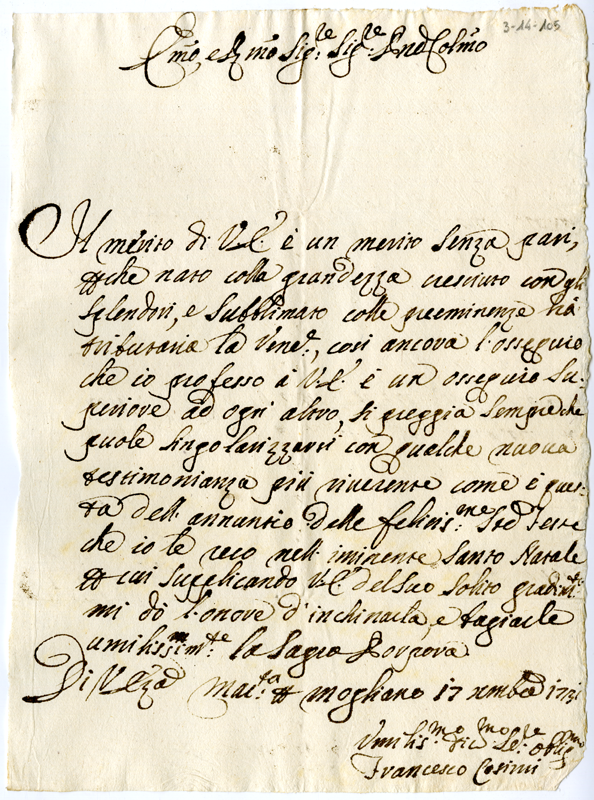 3-14-105
Emo e Rmo Sig.re Sig.re Pnd Colmo
Il merito di V.E. è un merito senza pari,
che nato colla grandezza cresciuto con gli
splendori, e subblimato colle preeminenze hà
tributaria la Vene.e, così ancora l'ossequio
che io professo à V.E. è un ossequio su-
periore ad ogni altro, si preggia sempre che
puole singolarizzarsi con qualche nuova
testimonianza più riverente come è ques-
ta dell'annuntio delle felicis.me Ste Feste
che io le reco nell'iminente Santo Natale
cui supplicando V.E. del suo solito gradim.t
mi dò l'onore d'inchinarla, e bagiarle
umilissimm.te la Sagra Porpora
Di V.Eza Mac.ta Mogliano 17 xmbre
Umilis.mo Di.mo Se.re oblig.mo
Francesco Cosimi